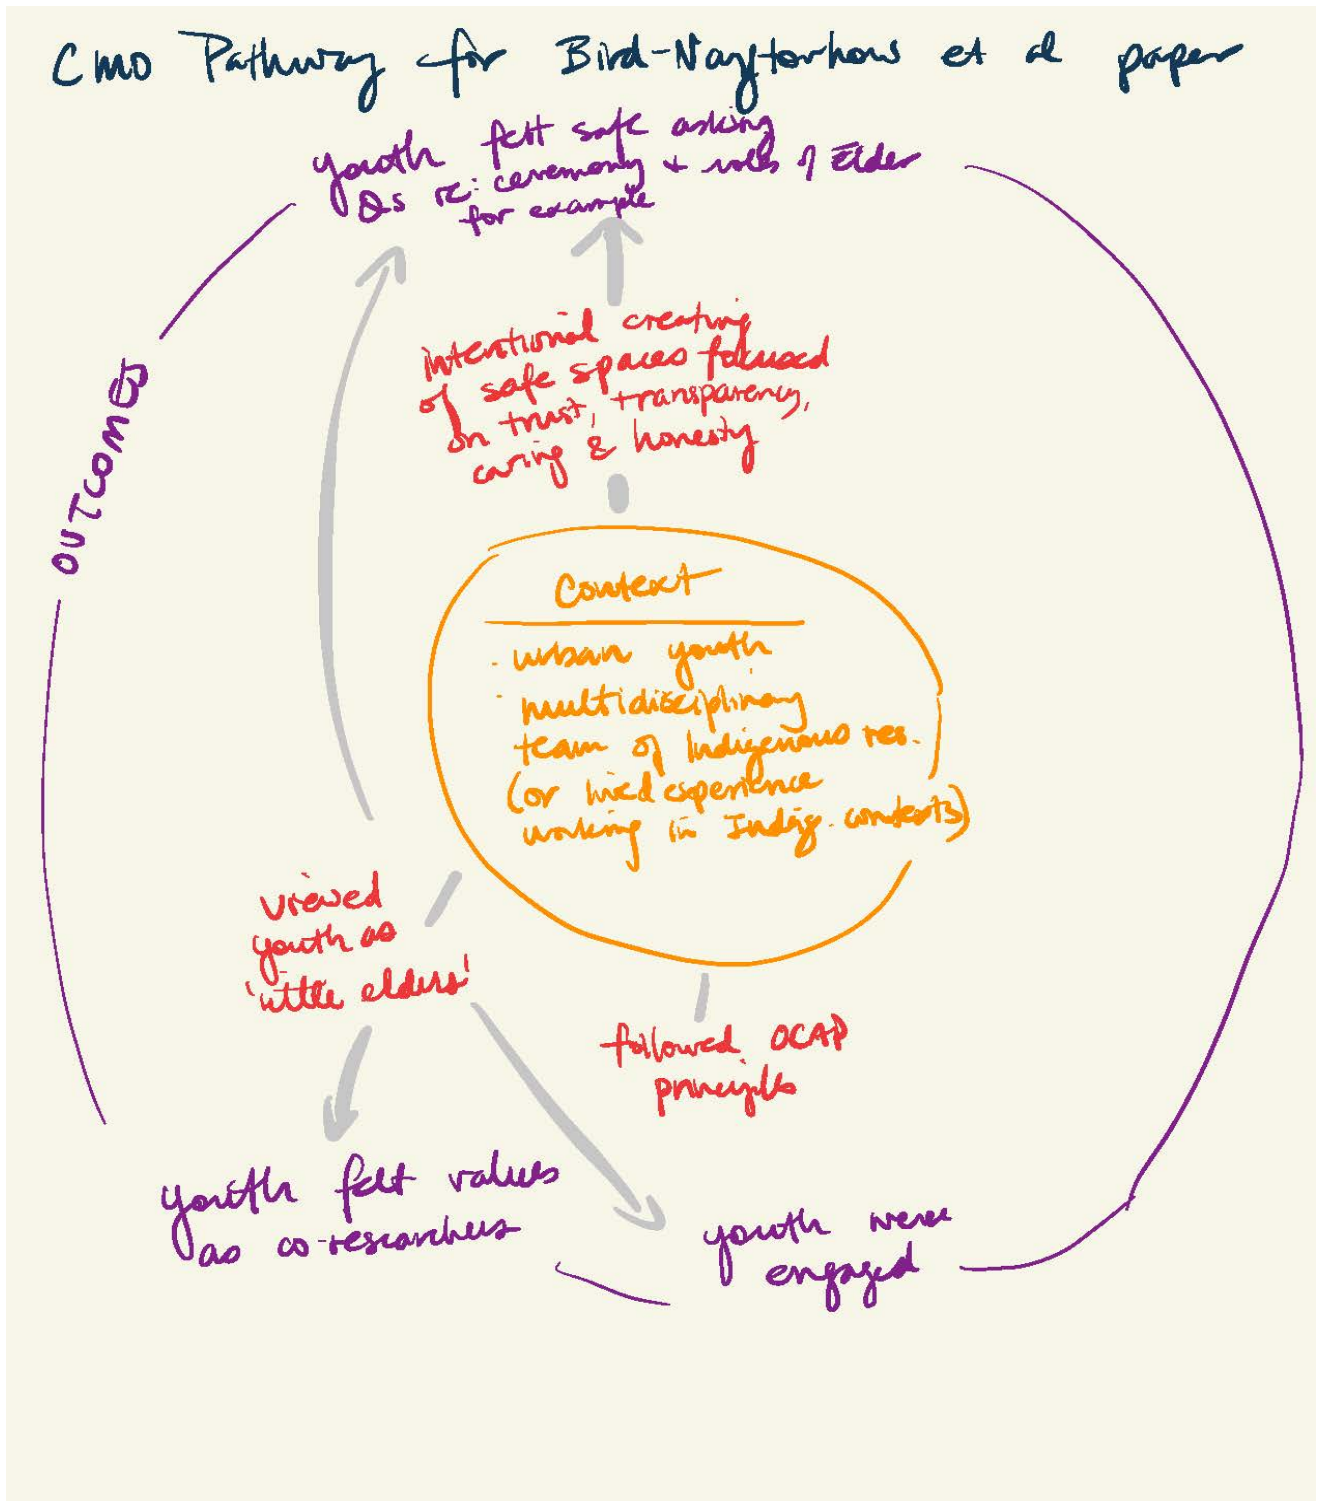 CMO Pathway for Bird-Naytowhow et al paper
youth felt safe asking
Qs re: ceremony + roles of Elder
for example
intentional creating
of safe spaces focused
on trust, transparency,
caring & honesty
OUTCOMES
Context
· urban youth
· multidisciplinary
team of Indigenous res.
(or lived experience
working in Indig. contexts)
viewed
youth as
'little elders'
followed OCAP
principles
youth felt values
as co-researchers
youth were
engaged